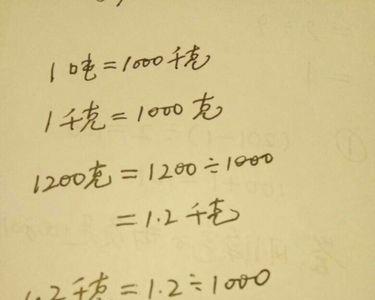 1吨=1000千克
1千克=1000克
1200克=1200÷1000
=1.2千克
1.2千克=1.2÷1000